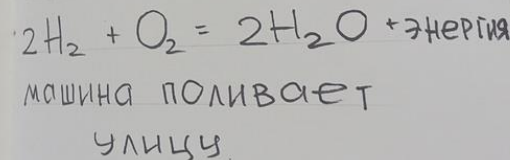 2H₂ + O₂ = 2H₂O + энергия
машина поливает
улицу